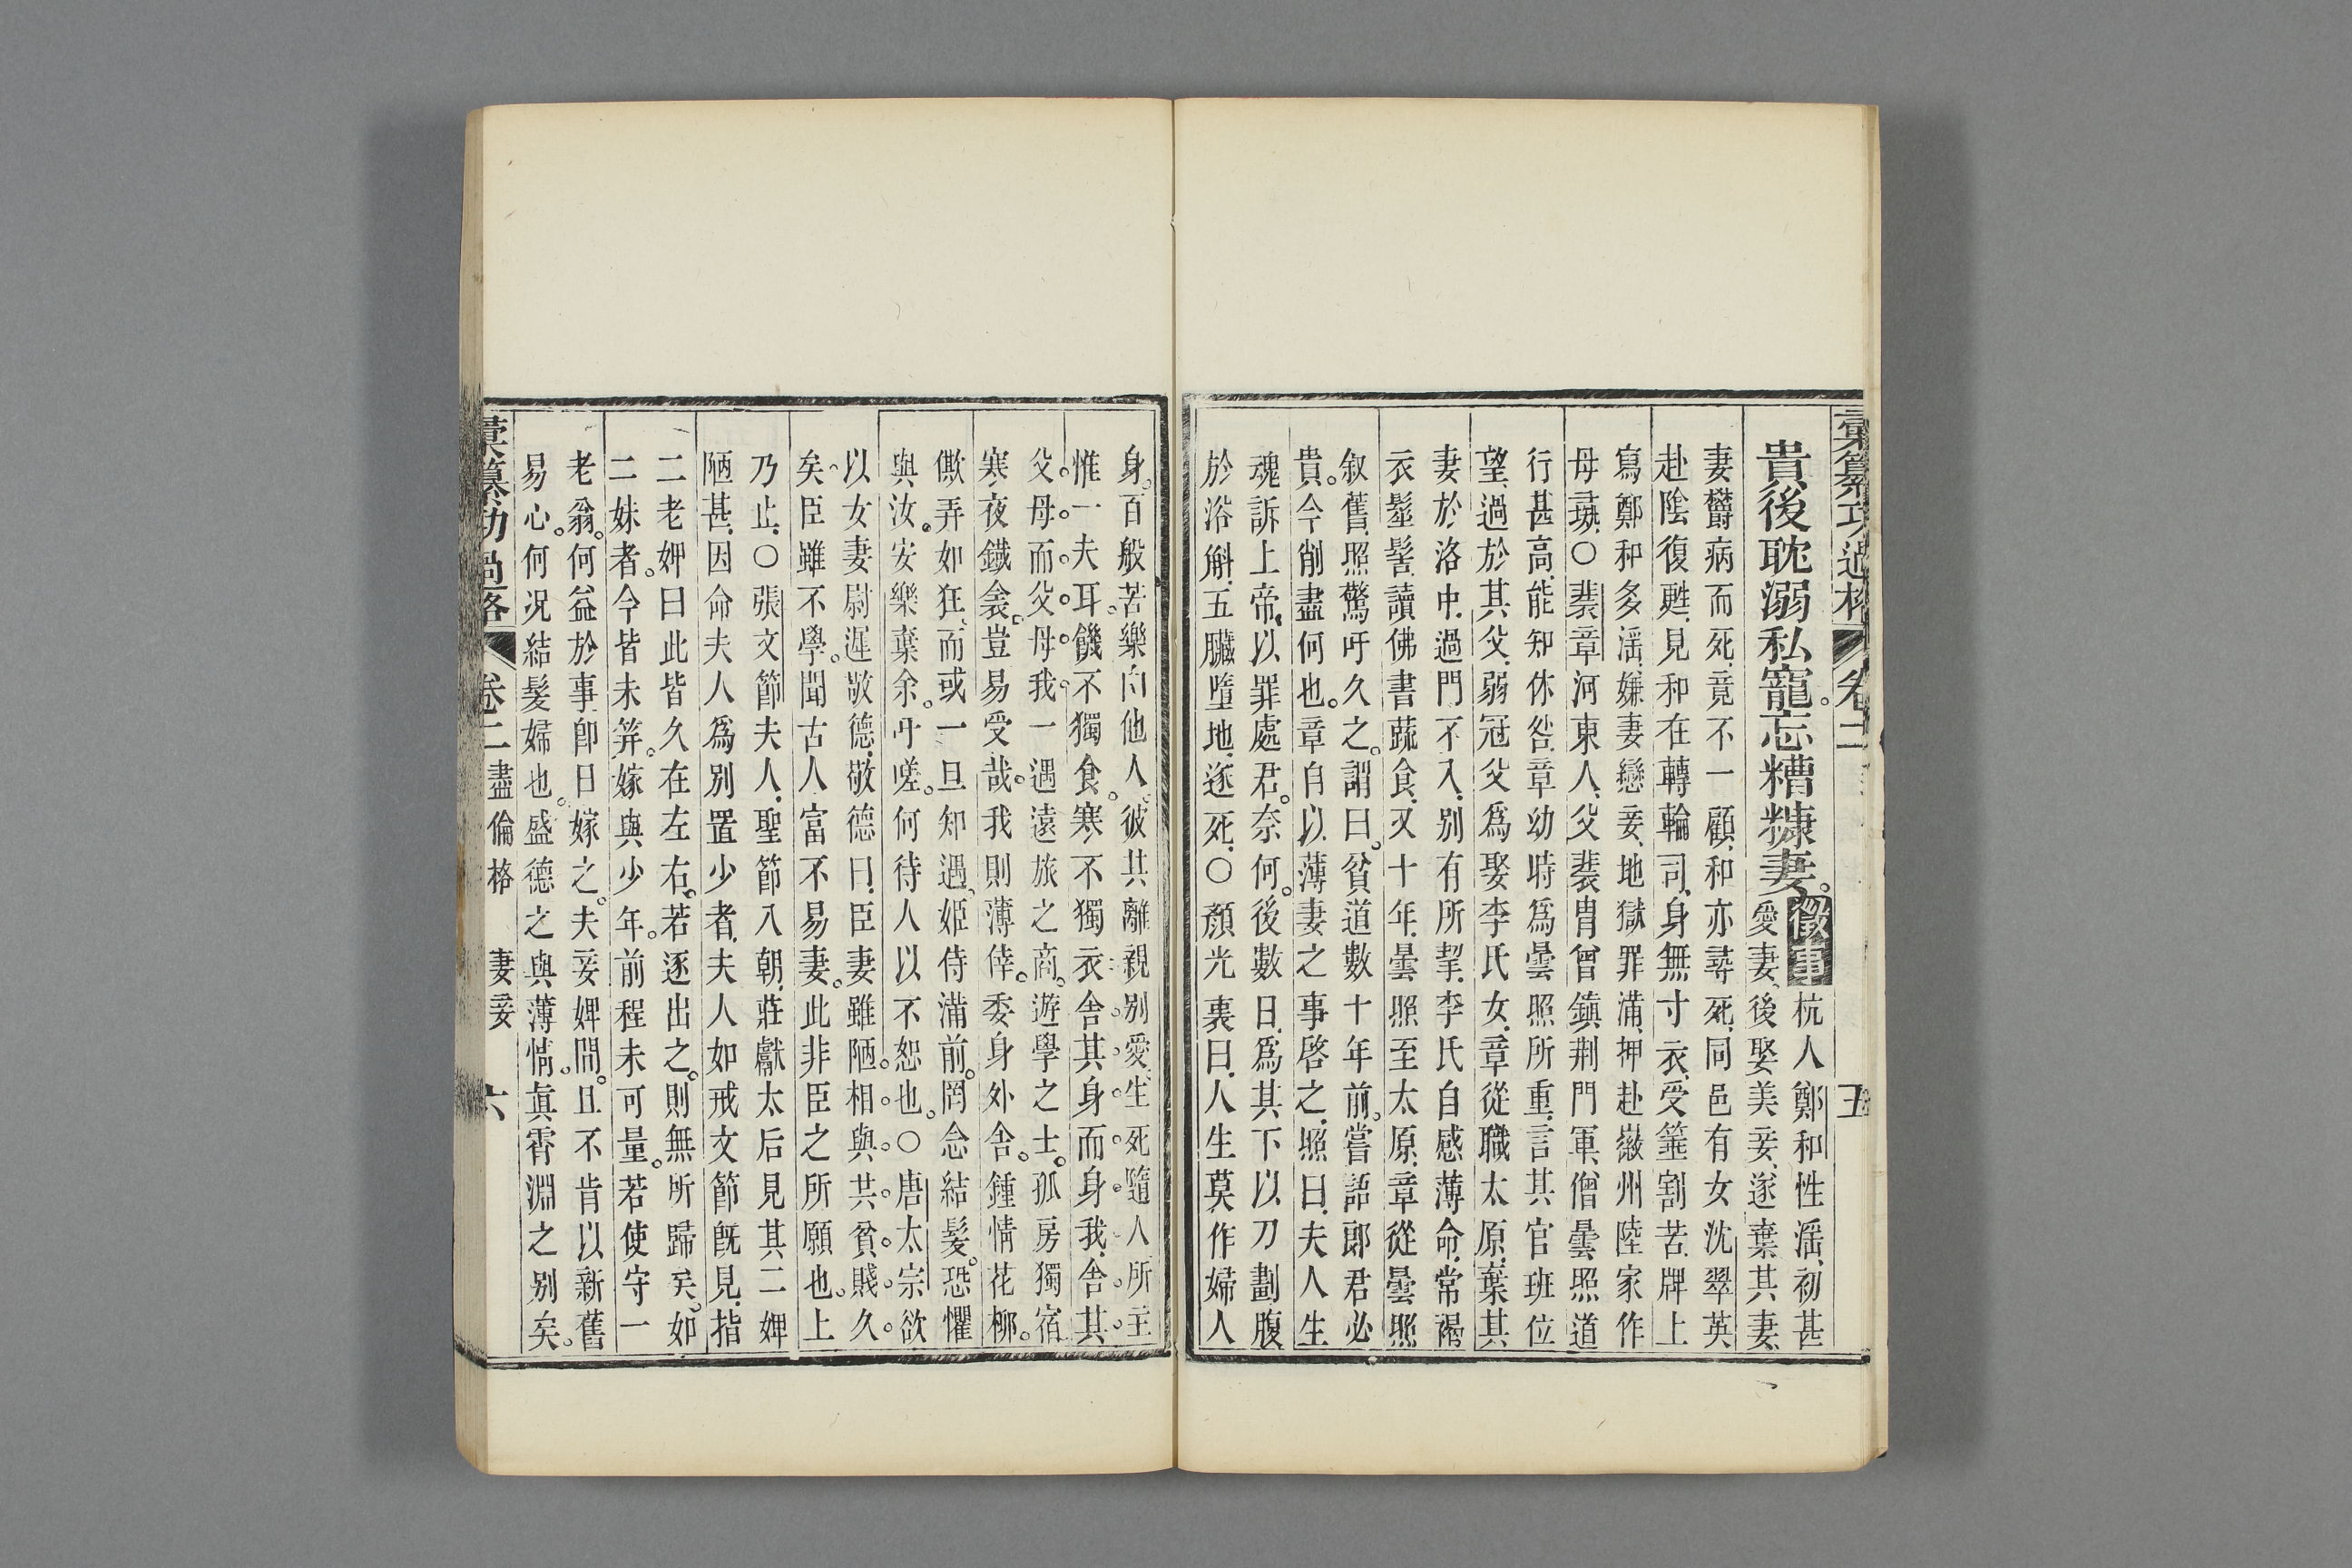 彙纂功過格 卷二 五
貴後耽溺私寵。忘糟糠妻。徵事 杭人鄭和性滛、初甚
愛妻、後娶美妾、遂棄其妻、
妻欝病而死、竟不一顧、和亦尋死、同邑有女沈翠英
赴陰復甦、見和在轉輪司、身無寸衣、受箠割苦、牌上
寫鄭和多滛、嫌妻戀妾、地獄罪滿、押赴嶶州陸家作
母彘、○裴章河東人、父裴胄曾鎮荆門軍、僧曇照道
行甚高、能知休咎、章幼時爲曇照所重、言其官班位
望、過於其父、弱冠父爲娶李氏女、章從職太原、棄其
妻於洛中、過門不入、別有所挈、李氏自感薄命、常褐
衣髽髻、讀佛書蔬食、又十年、曇照至太原、章從曇照
叙舊、照驚吁久之。謂曰。貧道數十年前。嘗語郎君必
貴。今削盡何也。章自以薄妻之事啓之、照曰、夫人生
魂訴上帝、以罪處君。奈何。後數日、爲其下以刀劃腹
於浴斛、五臟墮地、遂死、○顏光裏曰、人生莫作婦人
身。百般苦樂由他人。彼其離親別愛、生死隨人所主
惟一夫耳。饑不獨食。寒不獨衣舍。其身而身我、舍其
父母而父母我一遇遠旅之商。遊學之士。孤房獨宿
寒夜鐵衾。豈易受哉。我則薄倖。委身外舍。鍾情花柳。
僛弄如狂、而或一旦知遇。姬侍滿前。罔念結髮。恐懼
與汝。安樂棄余。吁嗟。何待人以不恕也。○唐太宗欲
以女妻尉遲敬德、敬德曰、臣妻雖陋。相與共貧賤久
矣。臣雖不學。聞古人富不易妻。此非臣之所願也。上
乃止、○張文節夫人、聖節入朝、莊獻太后見其二婢
陋甚、因命夫人爲別置少者、夫人如戒文節旣見、指
二老婢曰此皆久在左右。若逐出之。則無所歸矣。如
二妹者。今皆未笄。嫁與少年。前程未可量。若使守一
老翁。何益於事卽日嫁之。夫妾婢間。且不肯以新舊
易心。何况結髮婦也。盛德之與薄情。眞霄淵之別矣。
彙纂功過格 卷二 盡倫格 妻妾 六